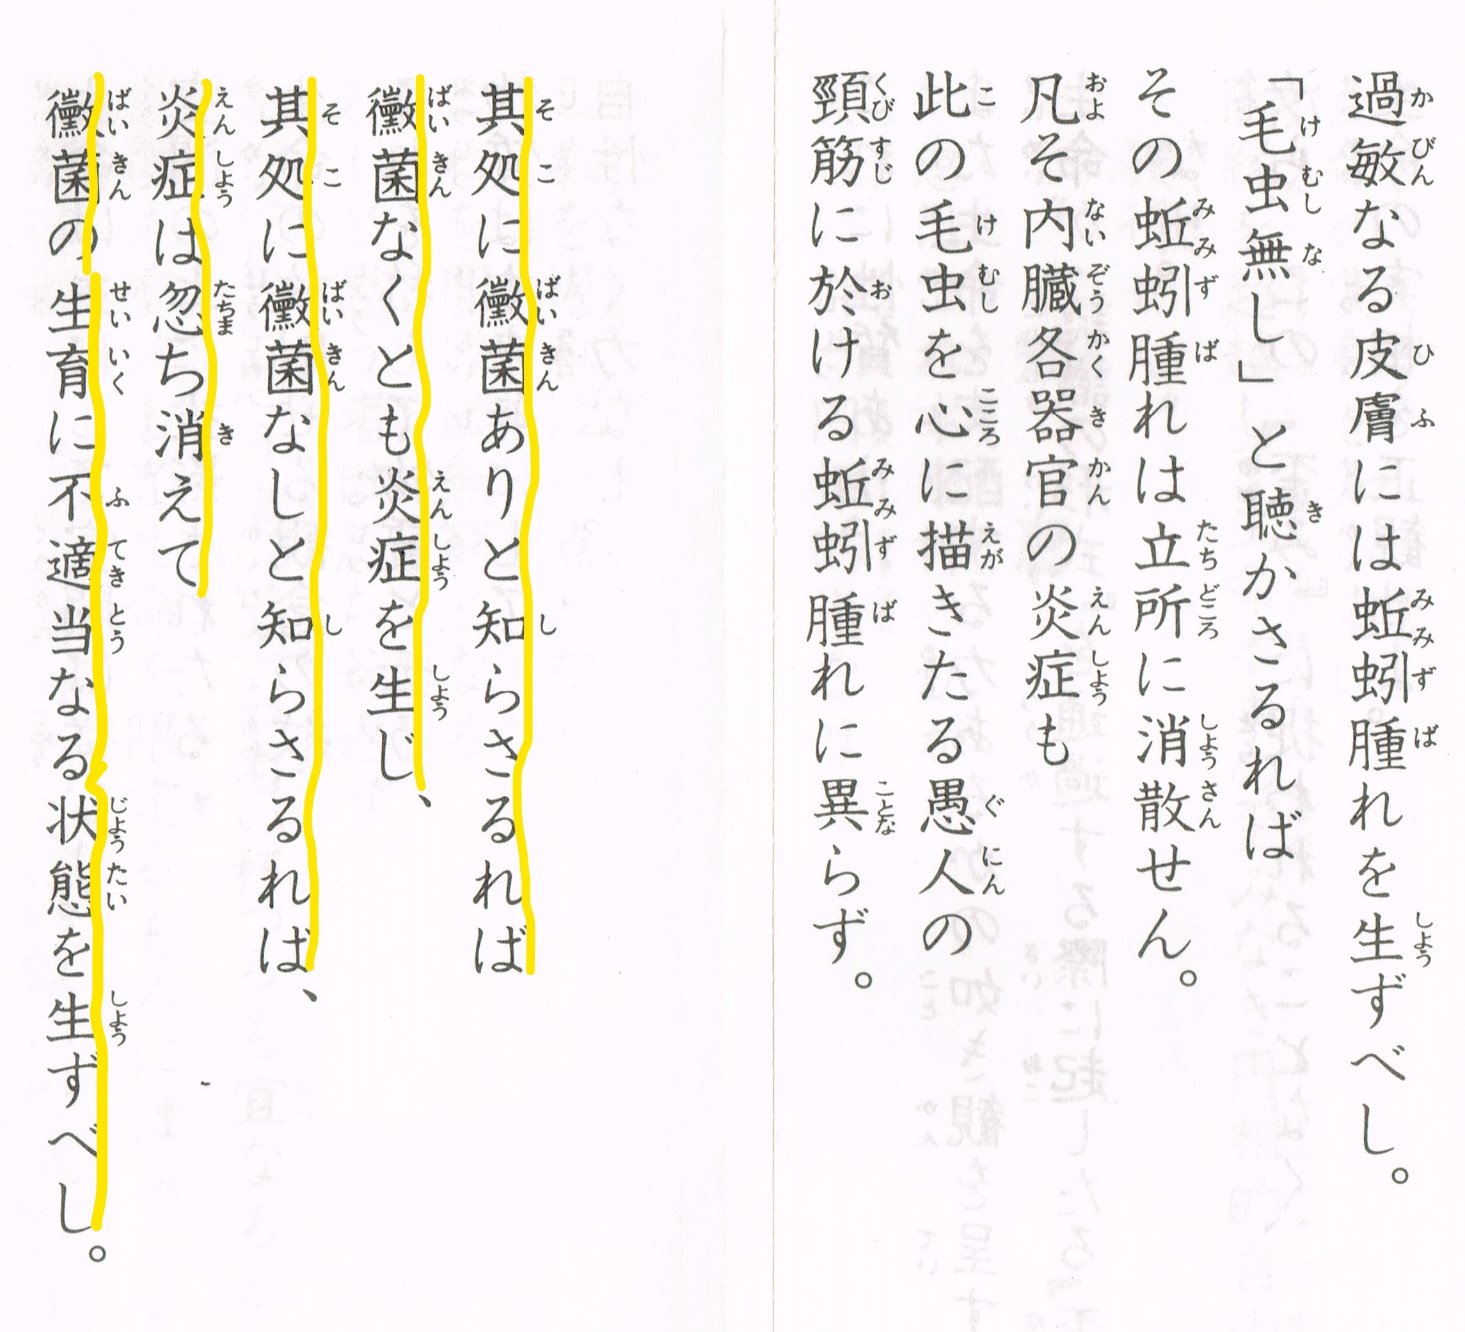 過敏なる皮膚には蚯蚓腫れを生ずべし。
「毛虫無し」と聴かさるれば
その蚯蚓腫れは立所に消散せん。
凡そ内臓各器官の炎症も
此の毛虫を心に描きたる愚人の
頸筋に於ける蚯蚓腫れに異らず。
其処に黴菌ありと知らさるれば
黴菌なくとも炎症を生じ、
其処に黴菌なしと知らさるれば、
炎症は忽ち消えて
黴菌の生育に不適当なる状態を生ずべし。